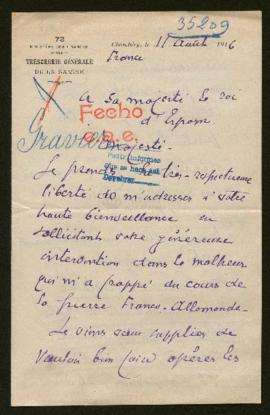 35209
73
Chambéry, le 11 août 1916
TRÉSORERIE GÉNÉRALE
DE LA SAVOIE
France
A Sa majesté le roi
d'Espagne
Fecho
Gravier
Majesté.
Je prends la très respectueuse
liberté de m'adresser à votre
haute bienveillance en
sollicitant votre généreuse
intervention dans le malheur
qui m'a frappé au cours de
la guerre Franco-Allemande.
Je viens vous supplier de
vouloir bien faire opérer les